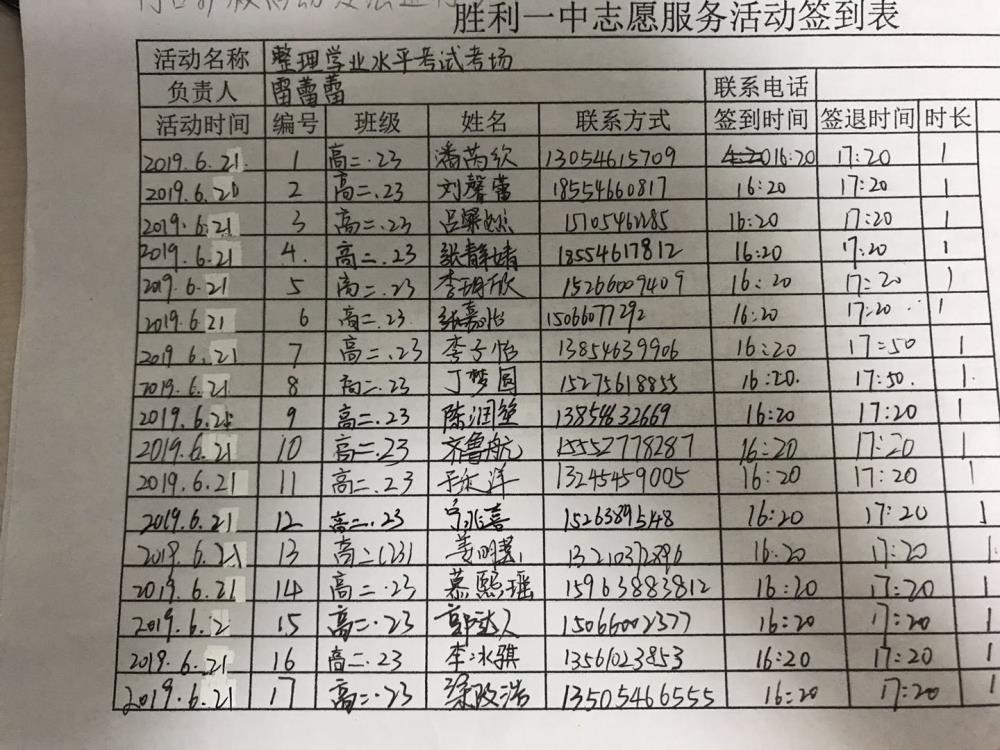 胜利一中志愿服务活动签到表
活动名称 整理学业水平考试考场
负责人 雷蕾蕾 联系电话
活动时间 编号 班级 姓名 联系方式 签到时间 签退时间 时长
2019.6.21 1 高二.23 潘芮欣 13054615709 16:20 17:20 1
2019.6.20 2 高二.23 刘馨蕾 18554660817 16:20 17:20 1
2019.6.21 3 高二.23 16:20 17:20 1
2019.6.21 4. 高二.23 张静婧 18554617812 16:20 17:20 1
2019.6.21 5 高二.23 李玥欣 15266009409 16:20 17:20 1
2019.6.21 6 高二.23. 张嘉怡 15066077292 16:20 17:20 1
2019.6.21 7 高二.23 李子怡 13854639906 16:20 17:50 1
2019.6.21 8 高二.23 丁梦圆 15275618855 16:20. 17:50. 1.
2019.6.21 9 高二.23 13854632669 16:20 17:20 1
2019.6.21 10 高二.23 齐鲁航 15552778287 16:20 17:20 1
2019.6.21 11 高二.23 13245459005 16:20 17:20 1
2019.6.21 12 高二.23 15263895148 16:20 17:20 1
2019.6.21 13 高二(23) 13210372896 16:20 17:20 1
2019.6.21 14 高二.23 慕熙瑶 15963883812 16:20 17:20 1
2019.6.2 15 高二.23 15066002577 16:20 17:20 1
2019.6.21 16 高二.23 李冰骐 13561023853 16:20 17:20 1
2019.6.21 17 高二.23 13505466555 16:20 17:20 1